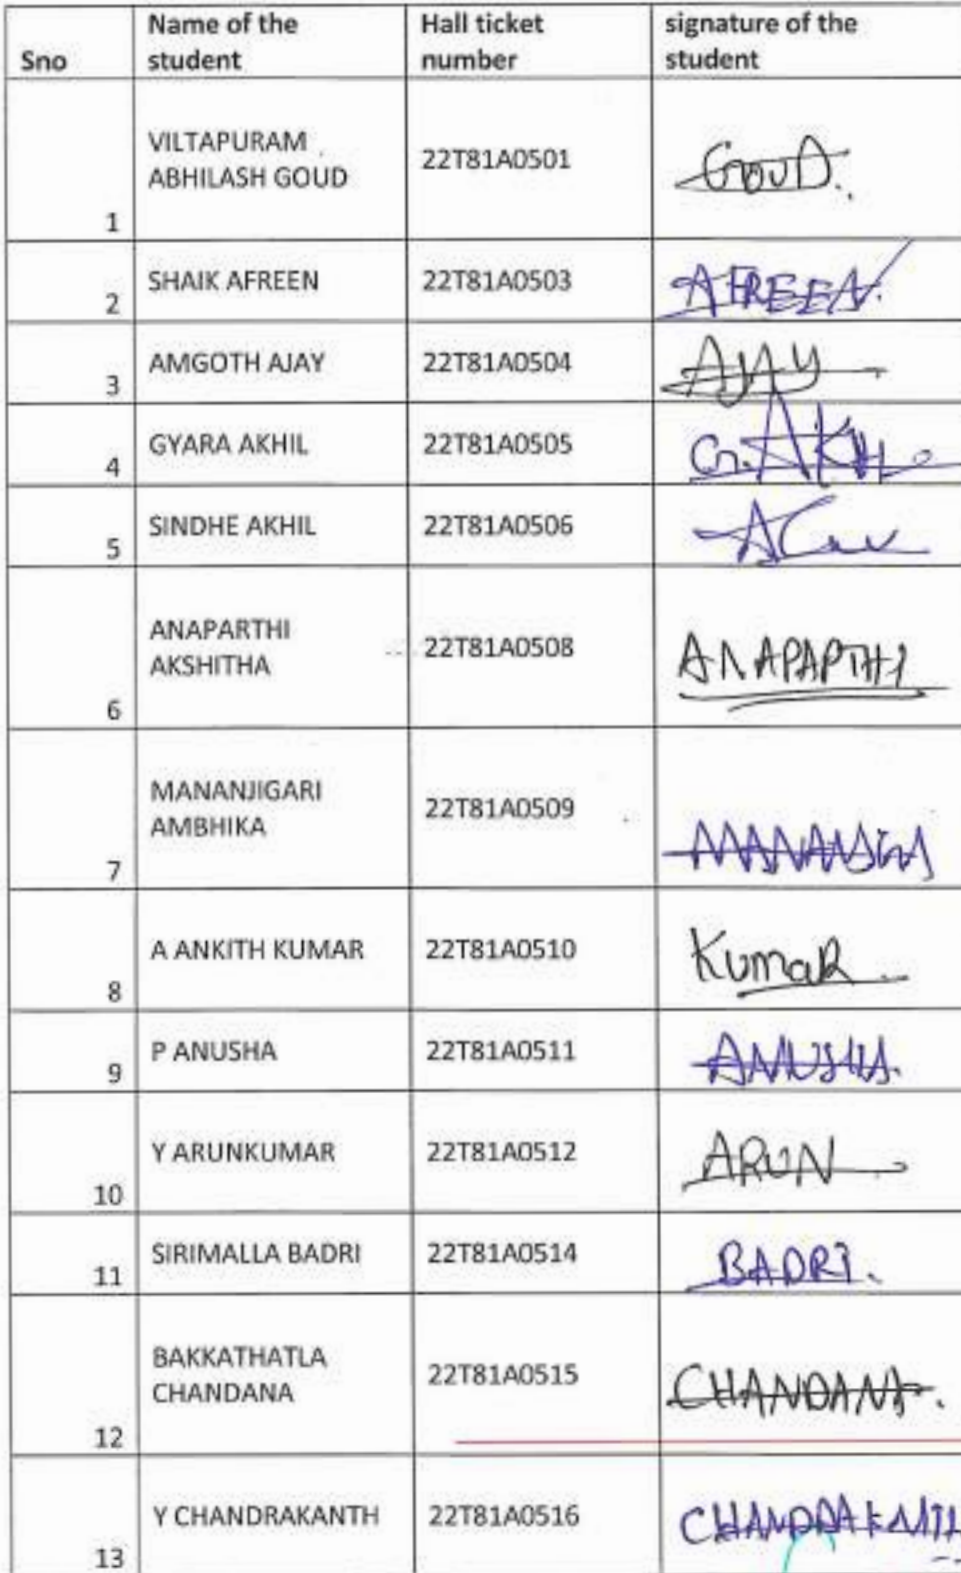 Sno Name of the student Hall ticket number signature of the student
1 VILTAPURAM ABHILASH GOUD 22T81A0501 GOUD.
2 SHAIK AFREEN 22T81A0503 AFREEN.
3 AMGOTH AJAY 22T81A0504 AJAY
4 GYARA AKHIL 22T81A0505 G. AKHIL
5 SINDHE AKHIL 22T81A0506
6 ANAPARTHI AKSHITHA 22T81A0508 ANAPAPTHI
7 MANANJIGARI AMBHIKA 22T81A0509
8 A ANKITH KUMAR 22T81A0510 KumaR
9 P ANUSHA 22T81A0511 ANUSHA.
10 Y ARUNKUMAR 22T81A0512 ARUN
11 SIRIMALLA BADRI 22T81A0514 BADRI.
12 BAKKATHATLA CHANDANA 22T81A0515 CHANDANA.
13 Y CHANDRAKANTH 22T81A0516